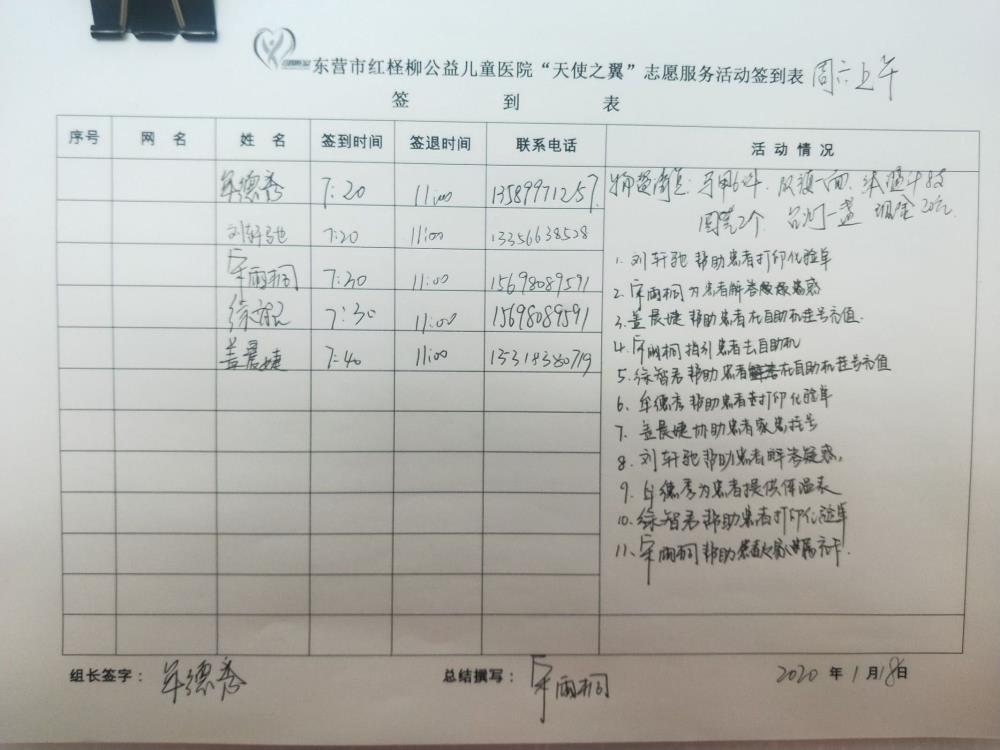 东营市红柽柳公益儿童医院“天使之翼”志愿服务活动签到表 周六上午
签 到 表
序号 网 名 姓 名 签到时间 签退时间 联系电话 活动情况
牟德秀 7:20 11:00 13589971257
刘轩驰 7:20 11:00 13356638528
宋雨桐 7:30 11:00 15698089591
徐智君 7:30 11:00 15698089591
盖晨婕 7:40 11:00 15318380719
马甲6件 一面 体温计8支
2个 台灯一盏 现金20元
1. 刘轩驰帮助患者打印化验单
2. 宋雨桐为患者解答疑惑
3. 盖晨婕帮助患者在自助机挂号充值
4. 宋雨桐指引患者去自助机
5. 徐智君帮助患者在自助机挂号充值
6. 牟德秀帮助患者去打印化验单
7. 盖晨婕协助患者家患挂号
8. 刘轩驰帮助患者解答疑惑。
9. 牟德秀为患者提供体温表
10. 徐智君帮助患者打印化验单
11、宋雨桐帮助患者
组长签字: 牟德秀 总结撰写: 宋雨桐 2020 年 1 月 18 日